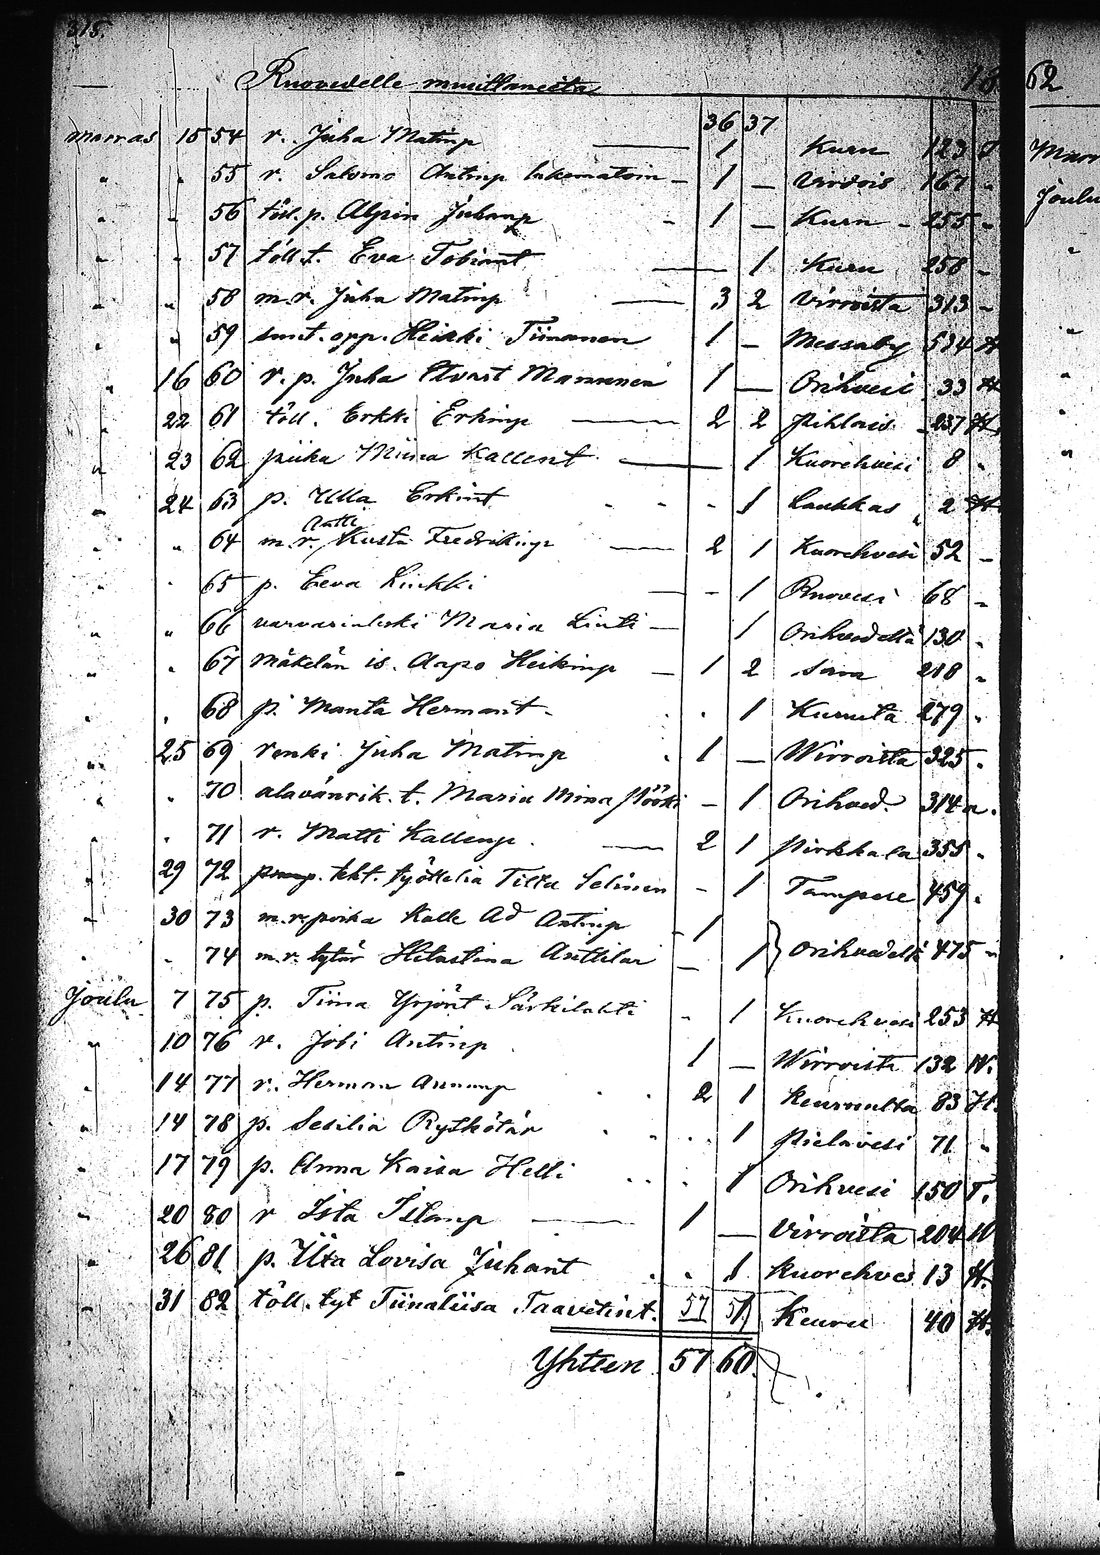 315.
Ruovedelle muuttaneita 18 62
36 37
Marras 15 54 r. Juha Matinp — 1 Kuru 123 T
" " 55 r. Salomo Antinp — 1 — Virdois 167 "
" " 56 töll. p. Alpin Juhanp - 1 — Kuru - 255 "
" " 57 töll. t. Eva Tobiant — 1 Kuru 258 "
" " 58 m.r. Juha Matinp — 3 2 Virroista 313 "
" " 59 opp. Heikki Tiimanen 1 - Messuby 534 H
" 16 60 r. p. Juha Edvart Mannonen 1 — Orihvesi 33 H
" 22 61 töll. Erkki Erkinp — 2 2 Pihlais 237 H.
" 23 62 piika Miina Kallent — 1 Kuorehvesi 8 "
" 24 63 p. Ulla Erkint - - - 1 Laukkas 2 H
Antti
" " 64 m.r. Kusta Fredrikinp — 2 1 Kuorehvesi 52 "
" 65 p. Eeva Linkki — - 1 Ruovesi 68 "
" " 66 Maria Linti — 1 Orihvedeltä 130 "
" " 67 Mäkelän is. Aapo Heikinp — 1 2 218 "
" " 68 p. Manta Hermant - . . 1 Kurusta 279 "
" 25 69 renki Juha Matinp . 1 — Wirroista 325 "
" " 70 t. Maria Mina - 1 Orihved. 314 a.
" " 71 r. Matti Kallenp. — 2 1 Pirkkala 355 "
" 29 72 Tilta Selinen - 1 Tampere 459 "
" 30 73 m.r. poika Kalle Ad Antinp - 1
" " 74 m.r. tytär Antilar — 1 } Orihvedeltä 475 "
Joulu 7 75 p. Tiina Yrjönt Särkilahti - 1 Kuorehvesi 253 H
" 10 76 r. Antinp 1 — Wirroista 132 W.
" 14 77 r. Herman Annanp . . 2 1 Keuruulta 83 H.
" 14 78 p. Sesilia Rytkötär . . . . 1 Pielavesi 71 "
" 17 79 p. Anna Kaisa Helli . . . 1 Orihvesi 150 T.
" 20 80 r — 1 — Virroista 204 W
" 26 81 p. Lovisa Juhant . . 1 Kuorehves 13 H.
" 31 82 töll. tyt Tiinaliisa Taavetint. 57 Keuru 40 H.
Yhteen 57 60.